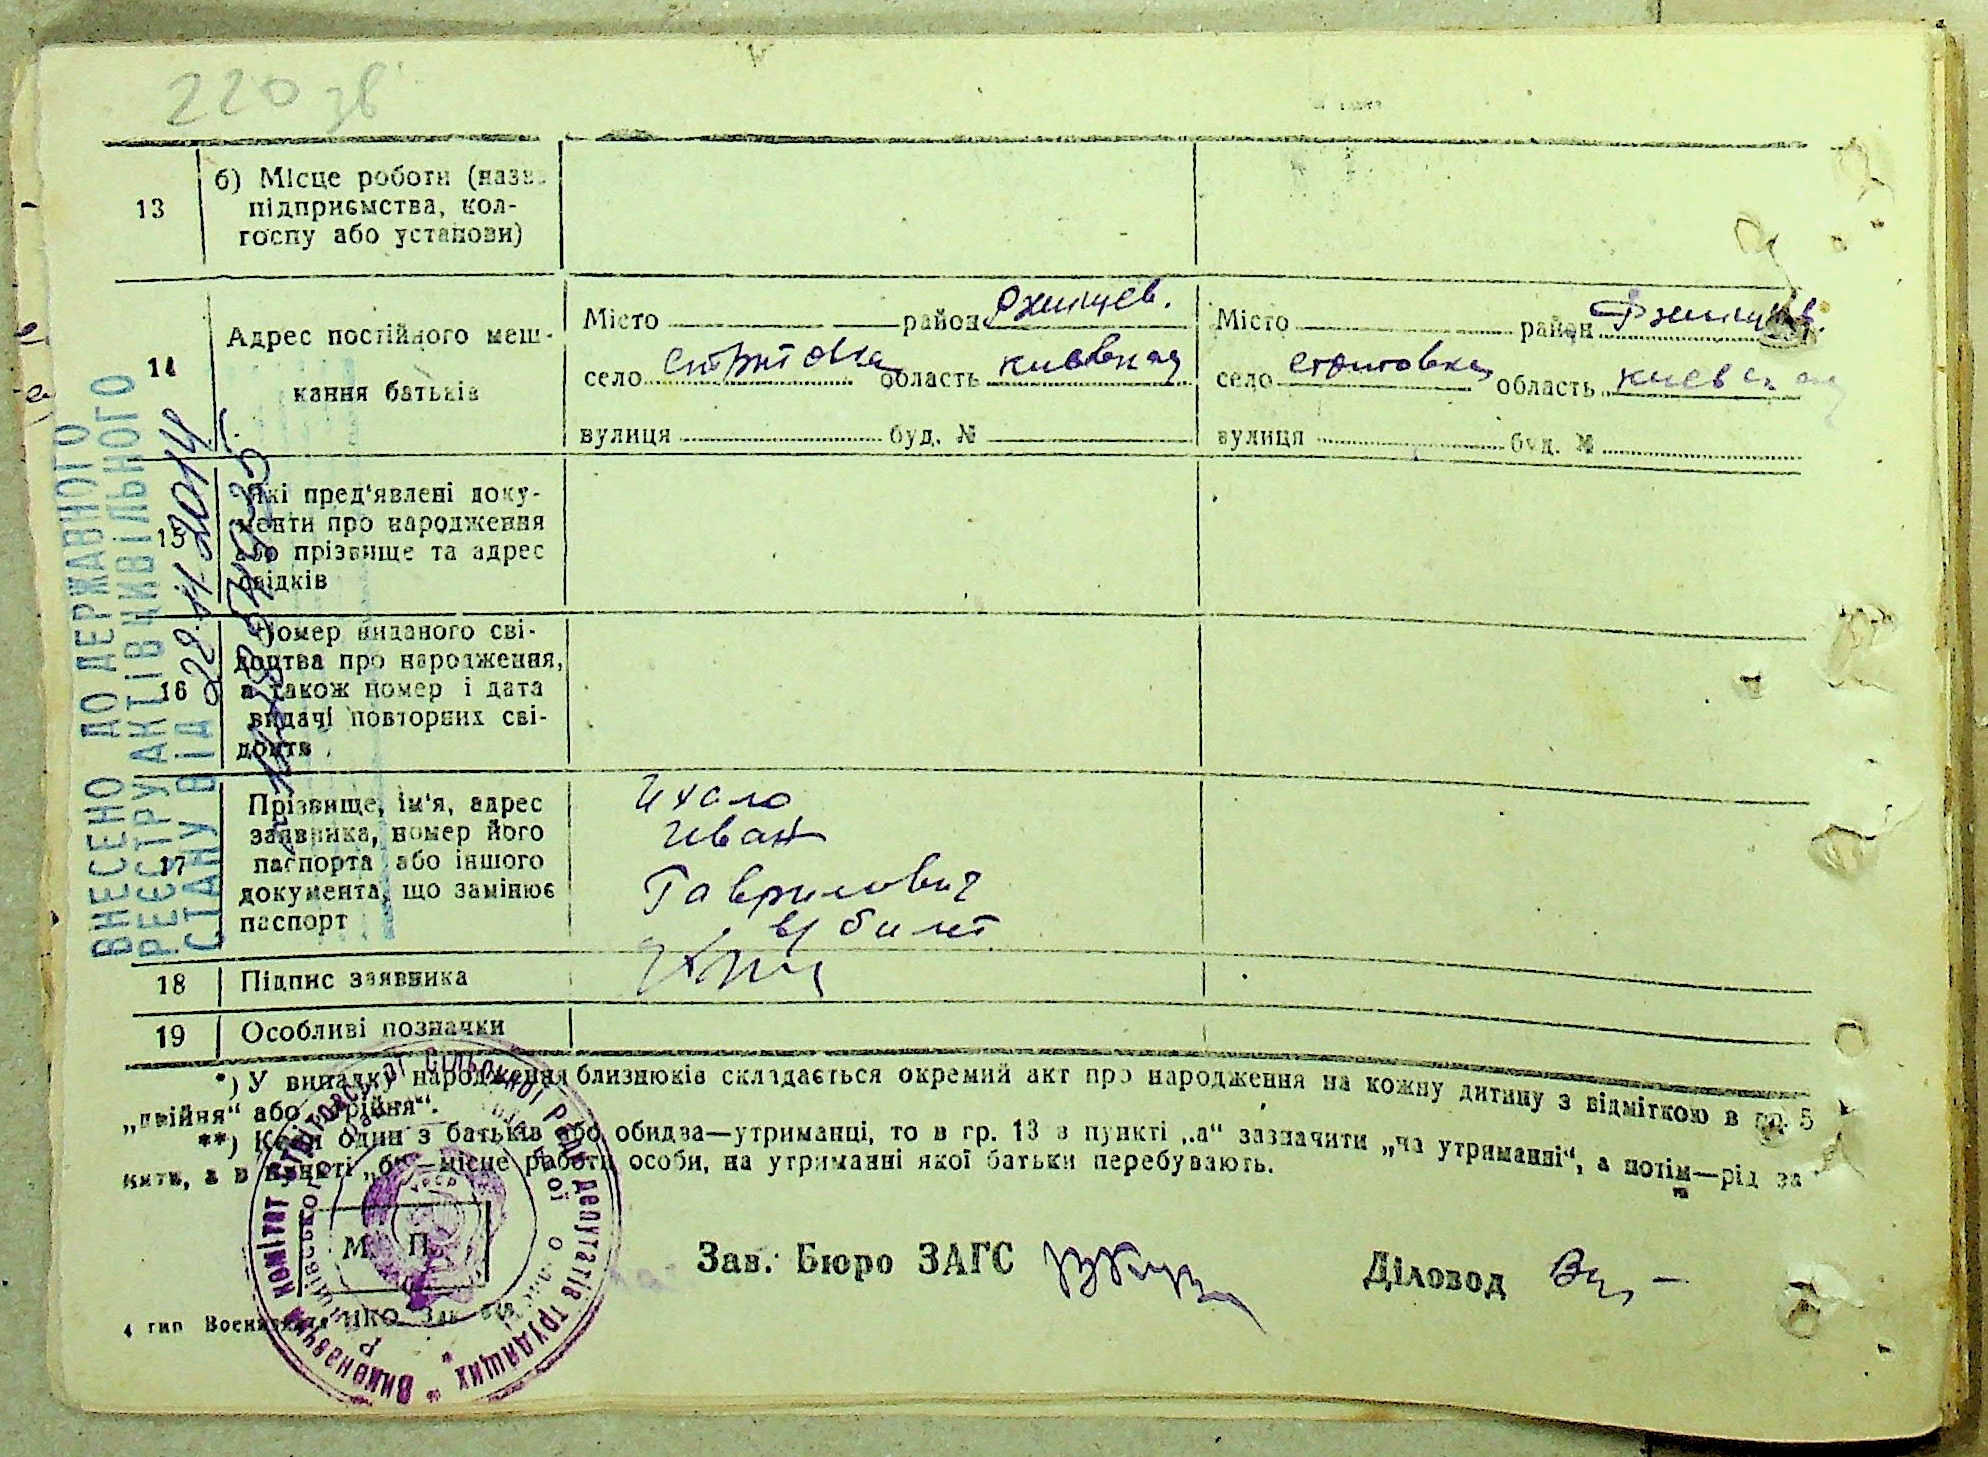 220 зв
13
б) Місце роботи (назва
підприємства, кол-
госпу або установи)
14
Адрес постійного меш-
кання батьків
Місто район Ржищев.
село Стритовка область киевская
вулиця буд. №
Місто район Ржищев.
село Стритовка область киевская
вулиця буд. №
15
Які пред'явлені доку-
менти про народження
або прізвище та адрес
свідків
16
Номер виданого сві-
доцтва про народження,
а також номер і дата
видачі повторних сві-
доцтв
17
Прізвище, ім'я, адрес
заявника, номер його
паспорта або іншого
документа, що замінює
паспорт
Иван
Гаврилович
билет
18
Підпис заявника
19
Особливі позначки
*) У випадку народження близнюків складається окремий акт про народження на кожну дитину з відміткою в гр. 5
„двійня“ або „трійня“.
**) Коли один з батьків або обидва—утриманці, то в гр. 13 в пункті „а“ зазначити „на утриманні“, а потім—рід за
нять, а в пункті „б“—місце роботи особи, на утриманні якої батьки перебувають.
М. П.
Зав. Бюро ЗАГС
Діловод
4 тип
ВНЕСЕНО ДО ДЕРЖАВНОГО
РЕЄСТРУ АКТІВ ЦИВІЛЬНОГО
СТАНУ ВІД 28.11.2014
Виконавчий комітет Стрітівської сільської Ради депутатів трудящих